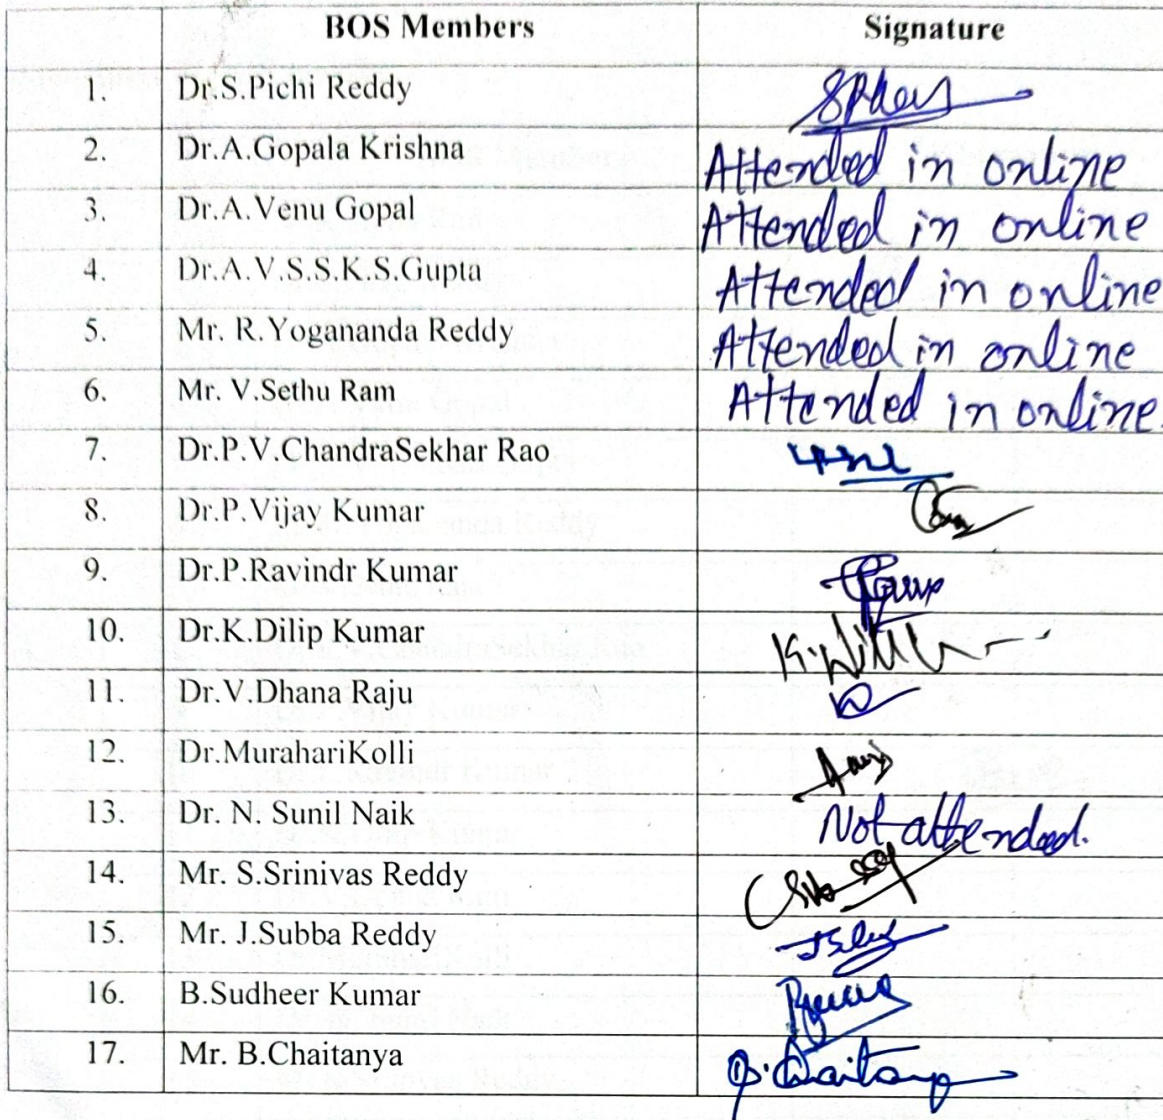 BOS Members Signature
1. Dr.S.Pichi Reddy
2. Dr.A.Gopala Krishna Attended in online
3. Dr.A.Venu Gopal Attended in online
4. Dr.A.V.S.S.K.S.Gupta Attended in online
5. Mr. R.Yogananda Reddy Attended in online
6. Mr. V.Sethu Ram Attended in online.
7. Dr.P.V.ChandraSekhar Rao
8. Dr.P.Vijay Kumar
9. Dr.P.Ravindr Kumar
10. Dr.K.Dilip Kumar
11. Dr.V.Dhana Raju
12. Dr.MurahariKolli
13. Dr. N. Sunil Naik Not attended.
14. Mr. S.Srinivas Reddy
15. Mr. J.Subba Reddy
16. B.Sudheer Kumar
17. Mr. B.Chaitanya B.Chaitanya